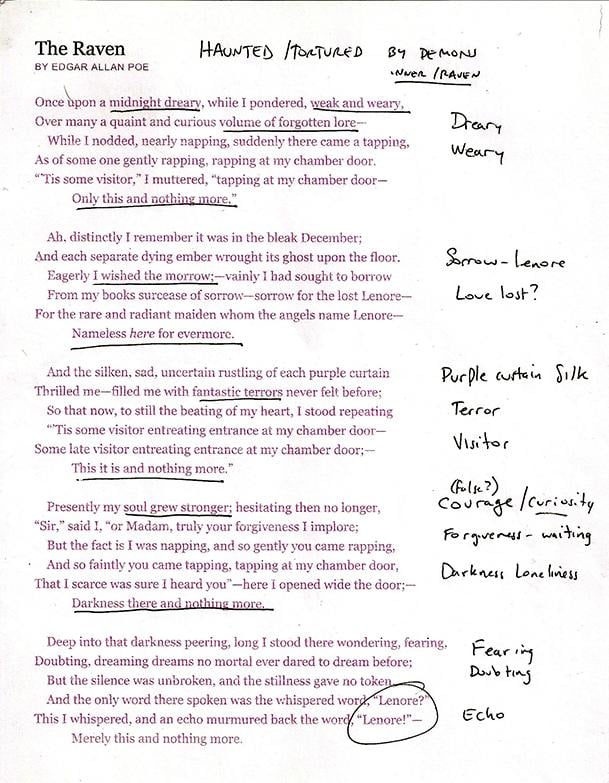 The Raven HAUNTED/TORTURED BY DEMONS
BY EDGAR ALLAN POE INNER/RAVEN
Once upon a midnight dreary, while I pondered, weak and weary,
Over many a quaint and curious volume of forgotten lore— Dreary
While I nodded, nearly napping, suddenly there came a tapping, Weary
As of some one gently rapping, rapping at my chamber door.
“’Tis some visitor,” I muttered, “tapping at my chamber door—
Only this and nothing more.”
Ah, distinctly I remember it was in the bleak December;
And each separate dying ember wrought its ghost upon the floor.
Eagerly I wished the morrow;—vainly I had sought to borrow Sorrow-Lenore
From my books surcease of sorrow—sorrow for the lost Lenore— Love lost?
For the rare and radiant maiden whom the angels name Lenore—
Nameless here for evermore.
And the silken, sad, uncertain rustling of each purple curtain Purple curtain Silk
Thrilled me—filled me with fantastic terrors never felt before;
So that now, to still the beating of my heart, I stood repeating Terror
“’Tis some visitor entreating entrance at my chamber door—
Some late visitor entreating entrance at my chamber door;— Visitor
This it is and nothing more.”
(false?)
Presently my soul grew stronger; hesitating then no longer, Courage/Curiosity
“Sir,” said I, “or Madam, truly your forgiveness I implore; Forgiveness-waiting
But the fact is I was napping, and so gently you came rapping,
And so faintly you came tapping, tapping at my chamber door, Darkness Loneliness
That I scarce was sure I heard you”—here I opened wide the door;—
Darkness there and nothing more.
Deep into that darkness peering, long I stood there wondering, fearing, Fearing
Doubting, dreaming dreams no mortal ever dared to dream before; Doubting
But the silence was unbroken, and the stillness gave no token,
And the only word there spoken was the whispered word, “Lenore?”
This I whispered, and an echo murmured back the word, “Lenore!”— Echo
Merely this and nothing more.